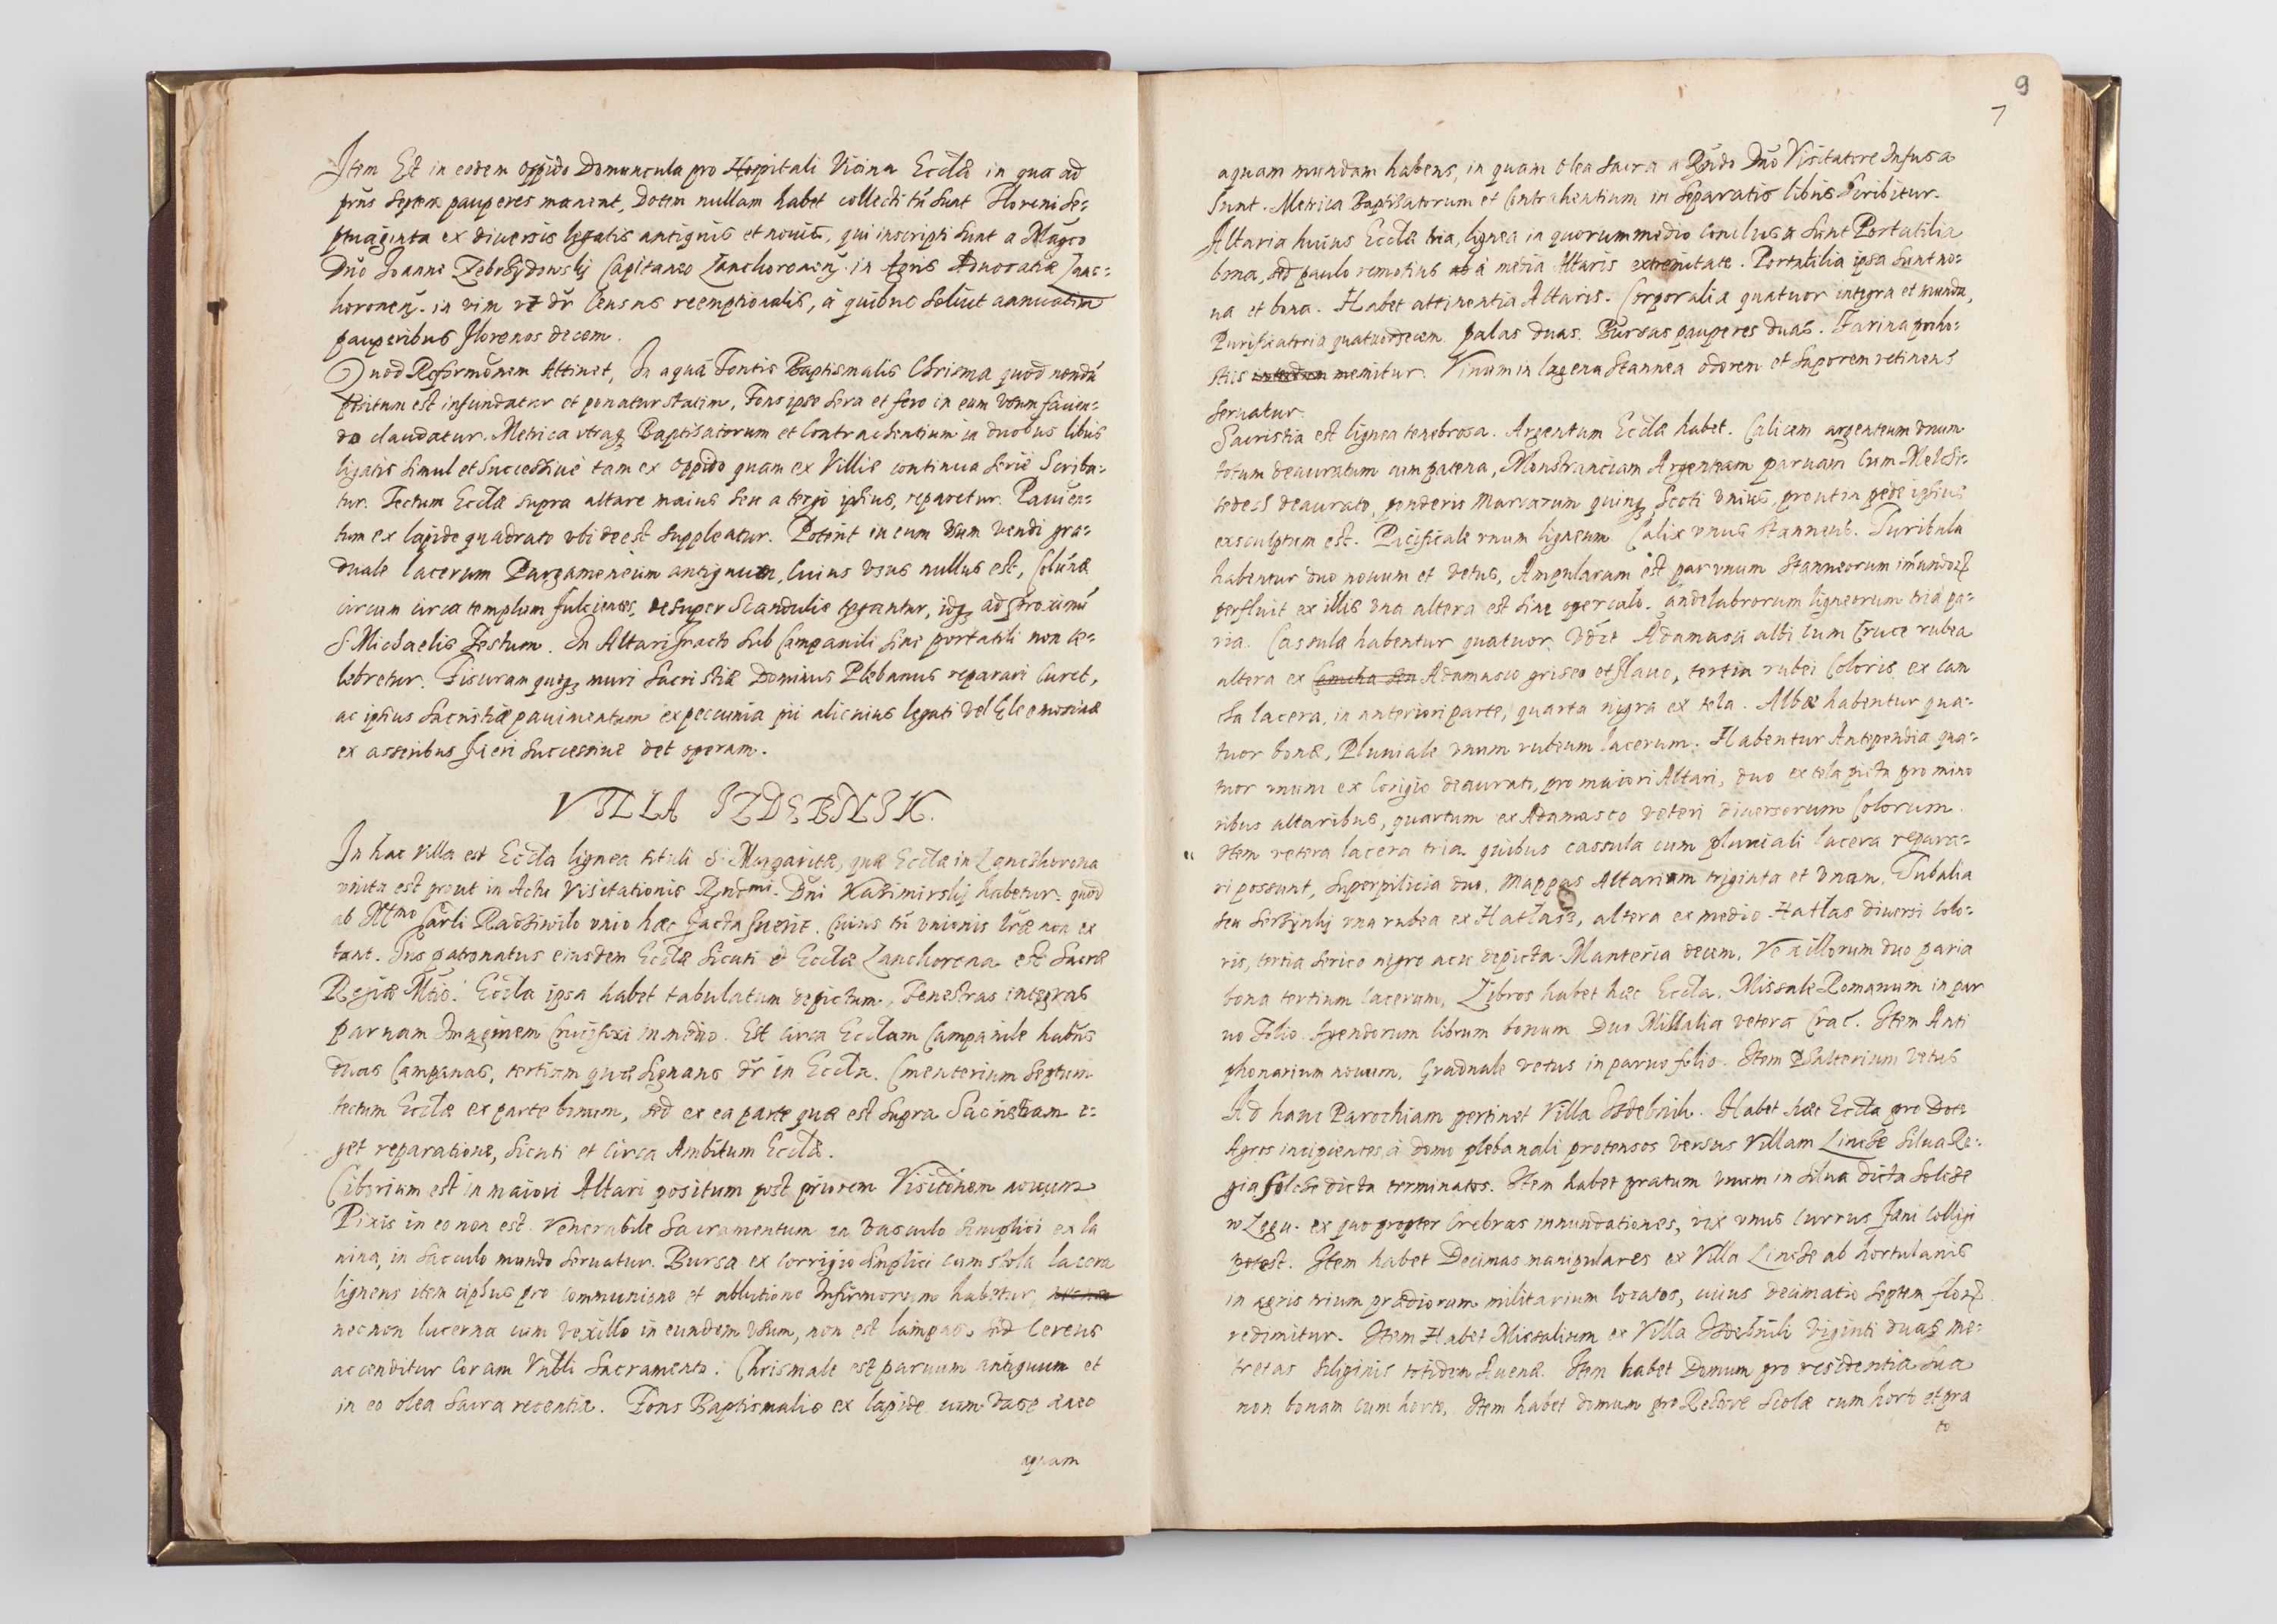 Item Est in eodem oppido Domuncula pro Hospitali Vicina Eccłæ in qua ad
p̃ns septem pauperes manent, Dotem nullam habet collecti tñ sunt Floreni se-
ptuaginta ex diuersis legatis antiquis et nouis, qui inscripti sunt a Mag̃co
Dño Joanne Zebrzydowskij Capitaneo Lanchoronen̄. in bonis Aduocatiæ Lanc-
koronen̄. in vim vt dr̃ Census reemptionalis, à quibus soluit annuatim
pauperibus florenos decem.
Quod Reformõnem Attinet, In aquã Fontis Baptismalis Chrisma quod nondũ
positum est infundatur et ponatur statim, Fons ipse sera et fero in eum vsum facien-
do claudatur. Metrica vtraq; Baptisatorum et Contrachentium in duobus libris
ligatis simul et successiuè tam ex oppido quam ex Villis continua serie Scriba-
tur. Tectum Eccłæ supra altare maius seu a tergo ipsius, reparetur. Pauimen-
tum ex lapide quadrato vbi deest suppleatur. Poterit in eum vsum vendi gra-
duale lacerum Pargameneum antiquum, cuius vsus nullus est, Colũnæ
circum circa templum fulcientes, desuper Scandulis tegantur, idq; ad proximũ
S. Michaelis Festum. In Altari fracto sub Campanili sine portatili non ce-
lebretur. Fisuram quoq; muri Sacristiæ Dominus Plebanus reparari Curet,
ac ipsius Sacristiæ pauimentum ex peccunia pii alicuius legati vel Eleemosinæ
ex asseribus fieri successiue det operam.
VILLA IZDEBNIK.
In hac Villa est Eccła lignea tituli S. Margaritæ, quæ Eccłæ in Lanchorona
vnita est prout in Actu Visitationis Rnd̃mi. Dñi Kazimirskij habetur quod
ab Illtmo Car̃li Radziwilo vnio hæc facta fuerit. Cuius tñ vnionis lr̃æ non ex
tant. Ius patronatus eiusdem Eccłæ sicuti et Eccłæ Lanchorona est Sacræ
Regiæ Mtis. Eccła ipsa habet tabulatum depictum, Fenestras integras
paruam Imaginem Crucifixi in medio. Est circa Eccłam Campanile habñs
duas Campanas, tertiam quæ signans dr̃ in Eccła. Cmenterium Septum
tectum Eccłæ ex parte bonum, sed ex ea parte quæ est supra Sacristiam e-
get reparatione, sicuti et circa Ambitum Eccłæ.
Ciborium est in maiori Altari positum post priorem Visitõnem nouum
Pixis in eo non est. Venerabile Sacramentum in vasculo simplici ex la
mina, in sacculo mundo seruatur. Bursa ex corrigio simplici cum stola lacera
ligneus item ciphus pro communione et ablutione Infirmorum habetur,
nec non lucerna cum vexillo in eundem vsum, non est lampas, sed Cereus
accenditur coram Vnbli Sacramento. Chrismale est paruum antiquum et
in eo olea sacra recentia. Fons Baptismalis ex lapide cum vase æneo
aquam
9
7
aquam mundam habens, in quam olea sacra a Rñdo Dño Visitatore Infusa
sunt. Metrica Baptisatorum et Contrahentium in Separatis libris scribitur.
Altaria huius Eccłæ tria, lignea in quorum medio conclusa sunt Portatilia
bona, sed paulo remotius ab à media Altaris extremitate. Portatilia ipsa sunt no-
ua et bona. Habet attinentia Altaris. Corporalia quatuor integra et munda,
Purificatoria quatuordecem palas duas. Bursas pauperes duas. Farina pro ho-
stiis interdum memitur. Vinum in lagena stannea odorem et saporem retinens
seruatur.
Sacristia est lignea tenebrosa. Argentum Eccłæ habet. Calicem argenteum vnum
totum deauratum cum patena, Monstranciam Argenteam paruam Cum Melchi-
sedech deaurato, ponderis marcarum quinq; scoti vnius, prout in pede ipsius
exsculptum est. Pacificale vnum ligneum. Calix vnus stanneus. Turibula
habentur duo nouum et vetus, Ampularum est par vnum stanneorum immundorum
perfluit ex illis vna altera est sine operculo. Candelabrorum ligneorum tria pa-
ria. Casulæ habentur quatuor. vdct Adamasci albi cum Cruce rubea
altera ex Camcha seu Adamasco griseo et flauo, tertia rubei Coloris ex cam
cha lacera, in anteriori parte, quarta nigra ex tela. Albæ habentur qua-
tuor bonæ, Pluuiale vnum rubeum lacerum. Habentur Antependia qua-
tuor vnum ex Corigio deaurato, pro maiori Altari, duo ex tela picta pro mino
ribus altaribus, quartum ex Adamasco veteri diuersorum Colorum.
" Item vetera lacera tria quibus cassula cum pluuiali lacera repara-
ri possunt, superpilicia duo, mappas Altarium triginta et vnam. Tubalia
seu serzynki vna rubea ex Hatlas, altera ex medio Hatlas diuersi colo-
ris, tertia serico nigro acu depicta. Manteria decem, Vexillorum duo paria
bona tertium lacerum, Libros habet hæc Eccła. Missale Romanum in par
uo Folio. Agendorum librum bonum. Duo Missalia vetera Crac̃. Item Anti
phonarium nouum, Graduale vetus in paruo folio. Item Psalterium vetus
Ad hanc Parochiam pertinet Villa Izdebnik. Habet hæc Eccła pro Dote
Agros incipientes, à domo plebanali protensos versus Villam Lincze Silua Re-
gia Solcze dicta terminatos. Item habet pratum vnum in silua dicta Solcze
w Legu. ex quo propter Crebras innundationes, vix vnus currus fæni Colligi
potest. Item habet Decimas manipulares ex Villa Lincze ab hortulanis
in agris trium prædiorum militarium locatos, cuius decimatio septem florenis
redimitur. Item Habet Missalium ex Villa Izdebnik Viginti duas me-
tretas Siliginis totidem Auenæ. Item habet Domum pro residentia sua
non bonam cum horto, Item habet domum pro Rectore Scolæ cum horto et pra
to